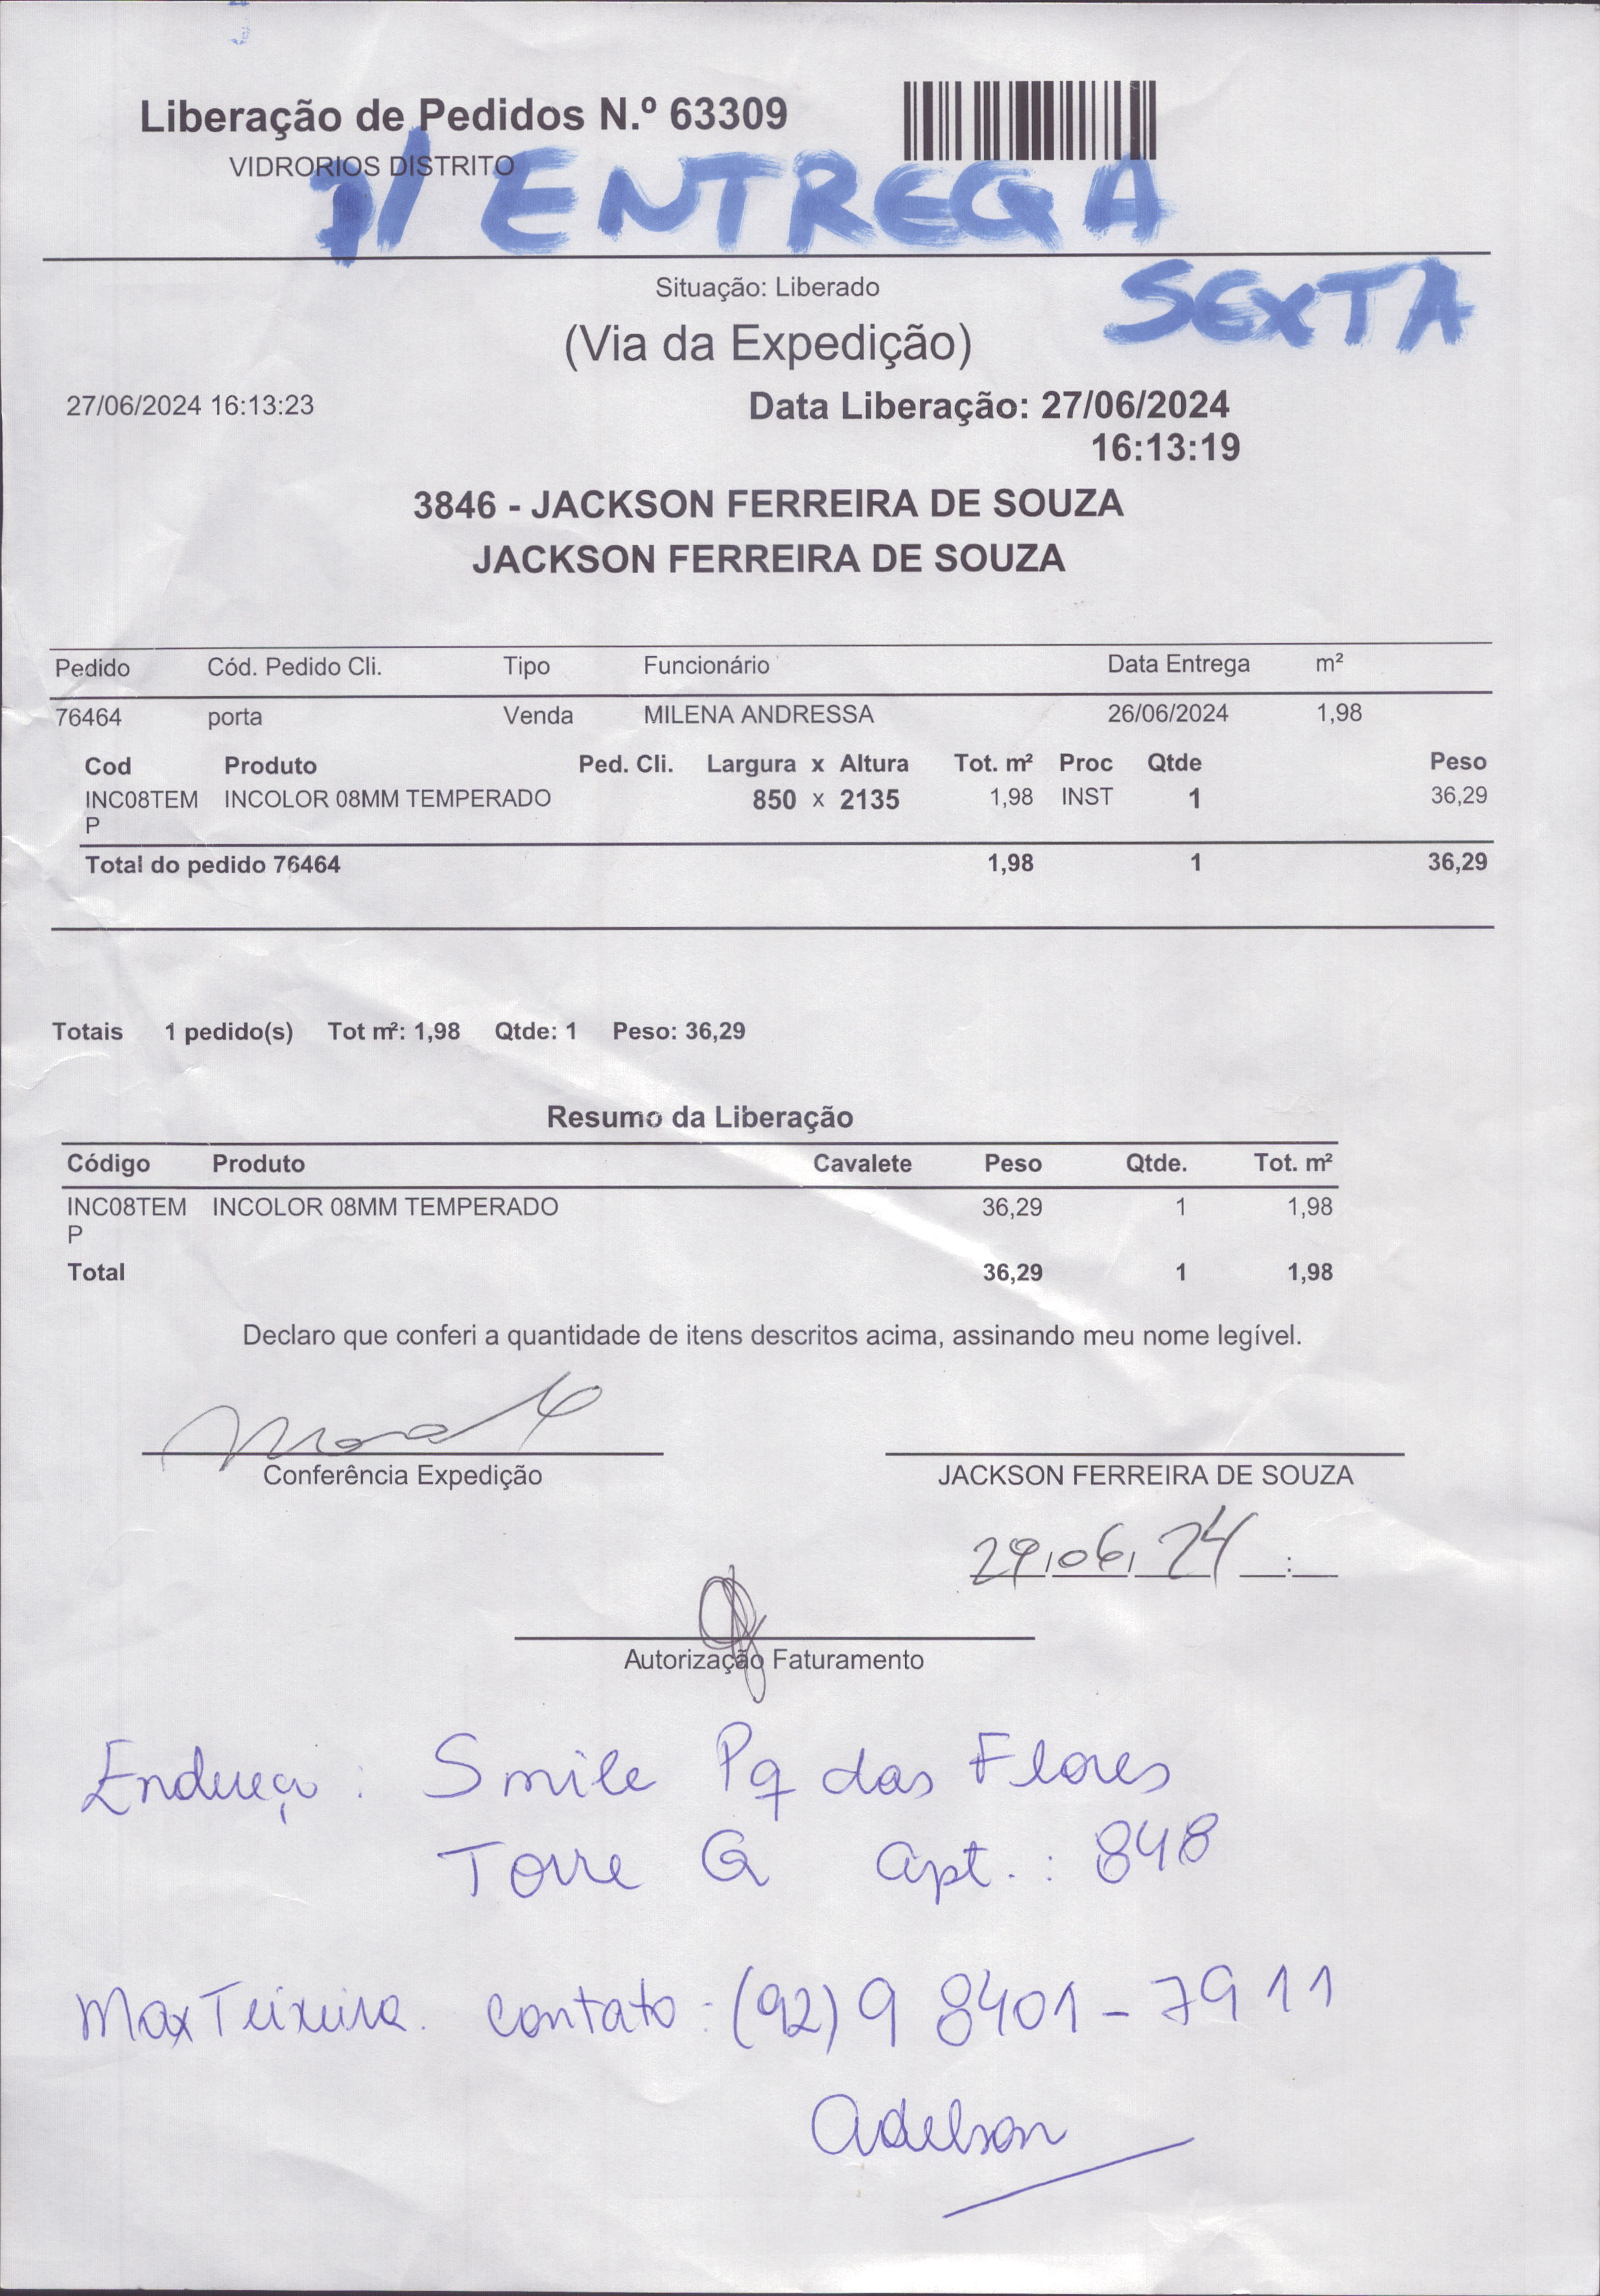 Liberação de Pedidos N.º 63309
VIDRORIOS DISTRITO
P/ ENTREGA
SEXTA
Situação: Liberado
(Via da Expedição)
27/06/2024 16:13:23 Data Liberação: 27/06/2024
16:13:19
3846 - JACKSON FERREIRA DE SOUZA
JACKSON FERREIRA DE SOUZA
Pedido Cód. Pedido Cli. Tipo Funcionário Data Entrega m²
76464 porta Venda MILENA ANDRESSA 26/06/2024 1,98
Cod Produto Ped. Cli. Largura x Altura Tot. m² Proc Qtde Peso
INC08TEM INCOLOR 08MM TEMPERADO 850 x 2135 1,98 INST 1 36,29
P
Total do pedido 76464 1,98 1 36,29
Totais 1 pedido(s) Tot m²: 1,98 Qtde: 1 Peso: 36,29
Resumo da Liberação
Código Produto Cavalete Peso Qtde. Tot. m²
INC08TEM INCOLOR 08MM TEMPERADO 36,29 1 1,98
P
Total 36,29 1 1,98
Declaro que conferi a quantidade de itens descritos acima, assinando meu nome legível.
Conferência Expedição JACKSON FERREIRA DE SOUZA
29/06/24 __:__
Autorização Faturamento
Endereço: Smile Pq das Flores
Torre G apt.: 848
Max Teixeira. contato: (92) 9 8401-7911
Adelson